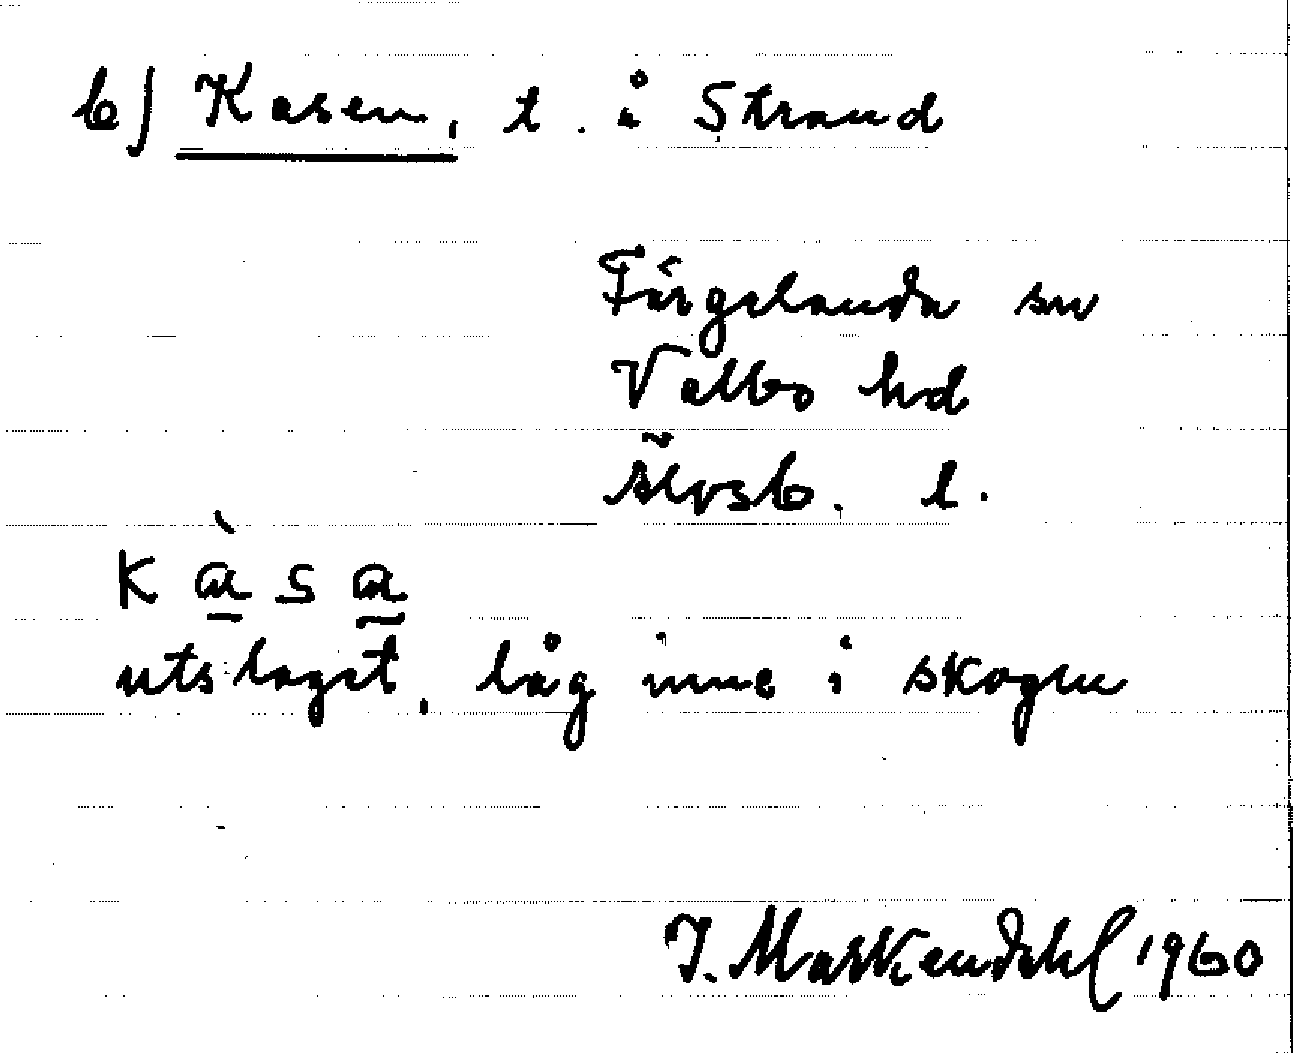 b) Kasen, t. å Strand
Färgelanda sn
Valbo hd
Älvsb. l.
kàsa
utslaget, låg inne i skogen
J. Markendahl 1960